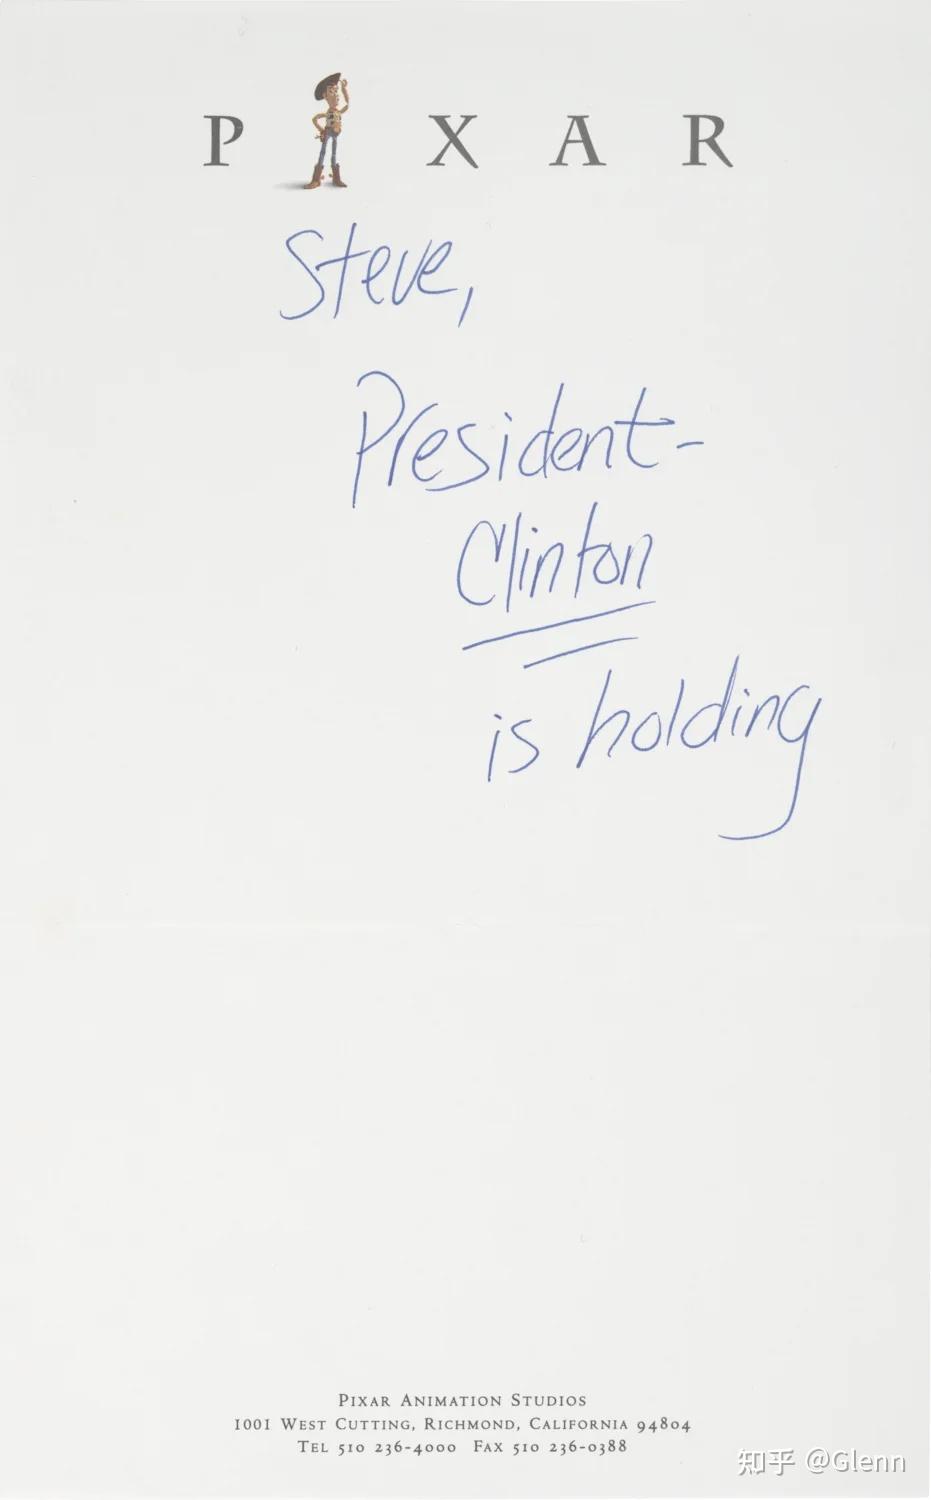 P X A R
Steve,
President-
Clinton
is holding
PIXAR ANIMATION STUDIOS
1001 WEST CUTTING, RICHMOND, CALIFORNIA 94804
TEL 510 236-4000 FAX 510 236-0388
知乎 @Glenn